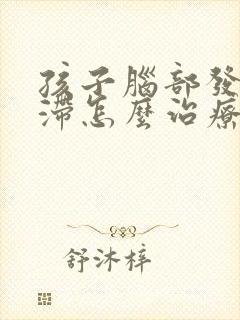 孩子腦部發
滯怎麼治療
舒沐梓